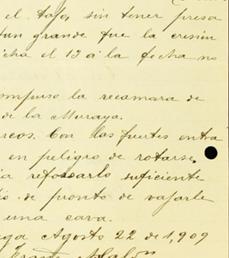 el tajo, sin tener presa
tan grande fue la cresin
cha el 13 á la fecha no
compuso la recamara de
de la Muraya.
rcos. Con las fuertes entra
en peligro de rotarse
la reforsarlo suficiente
de pronto de vajarle
una cava.
Agosto 22 de 1,909